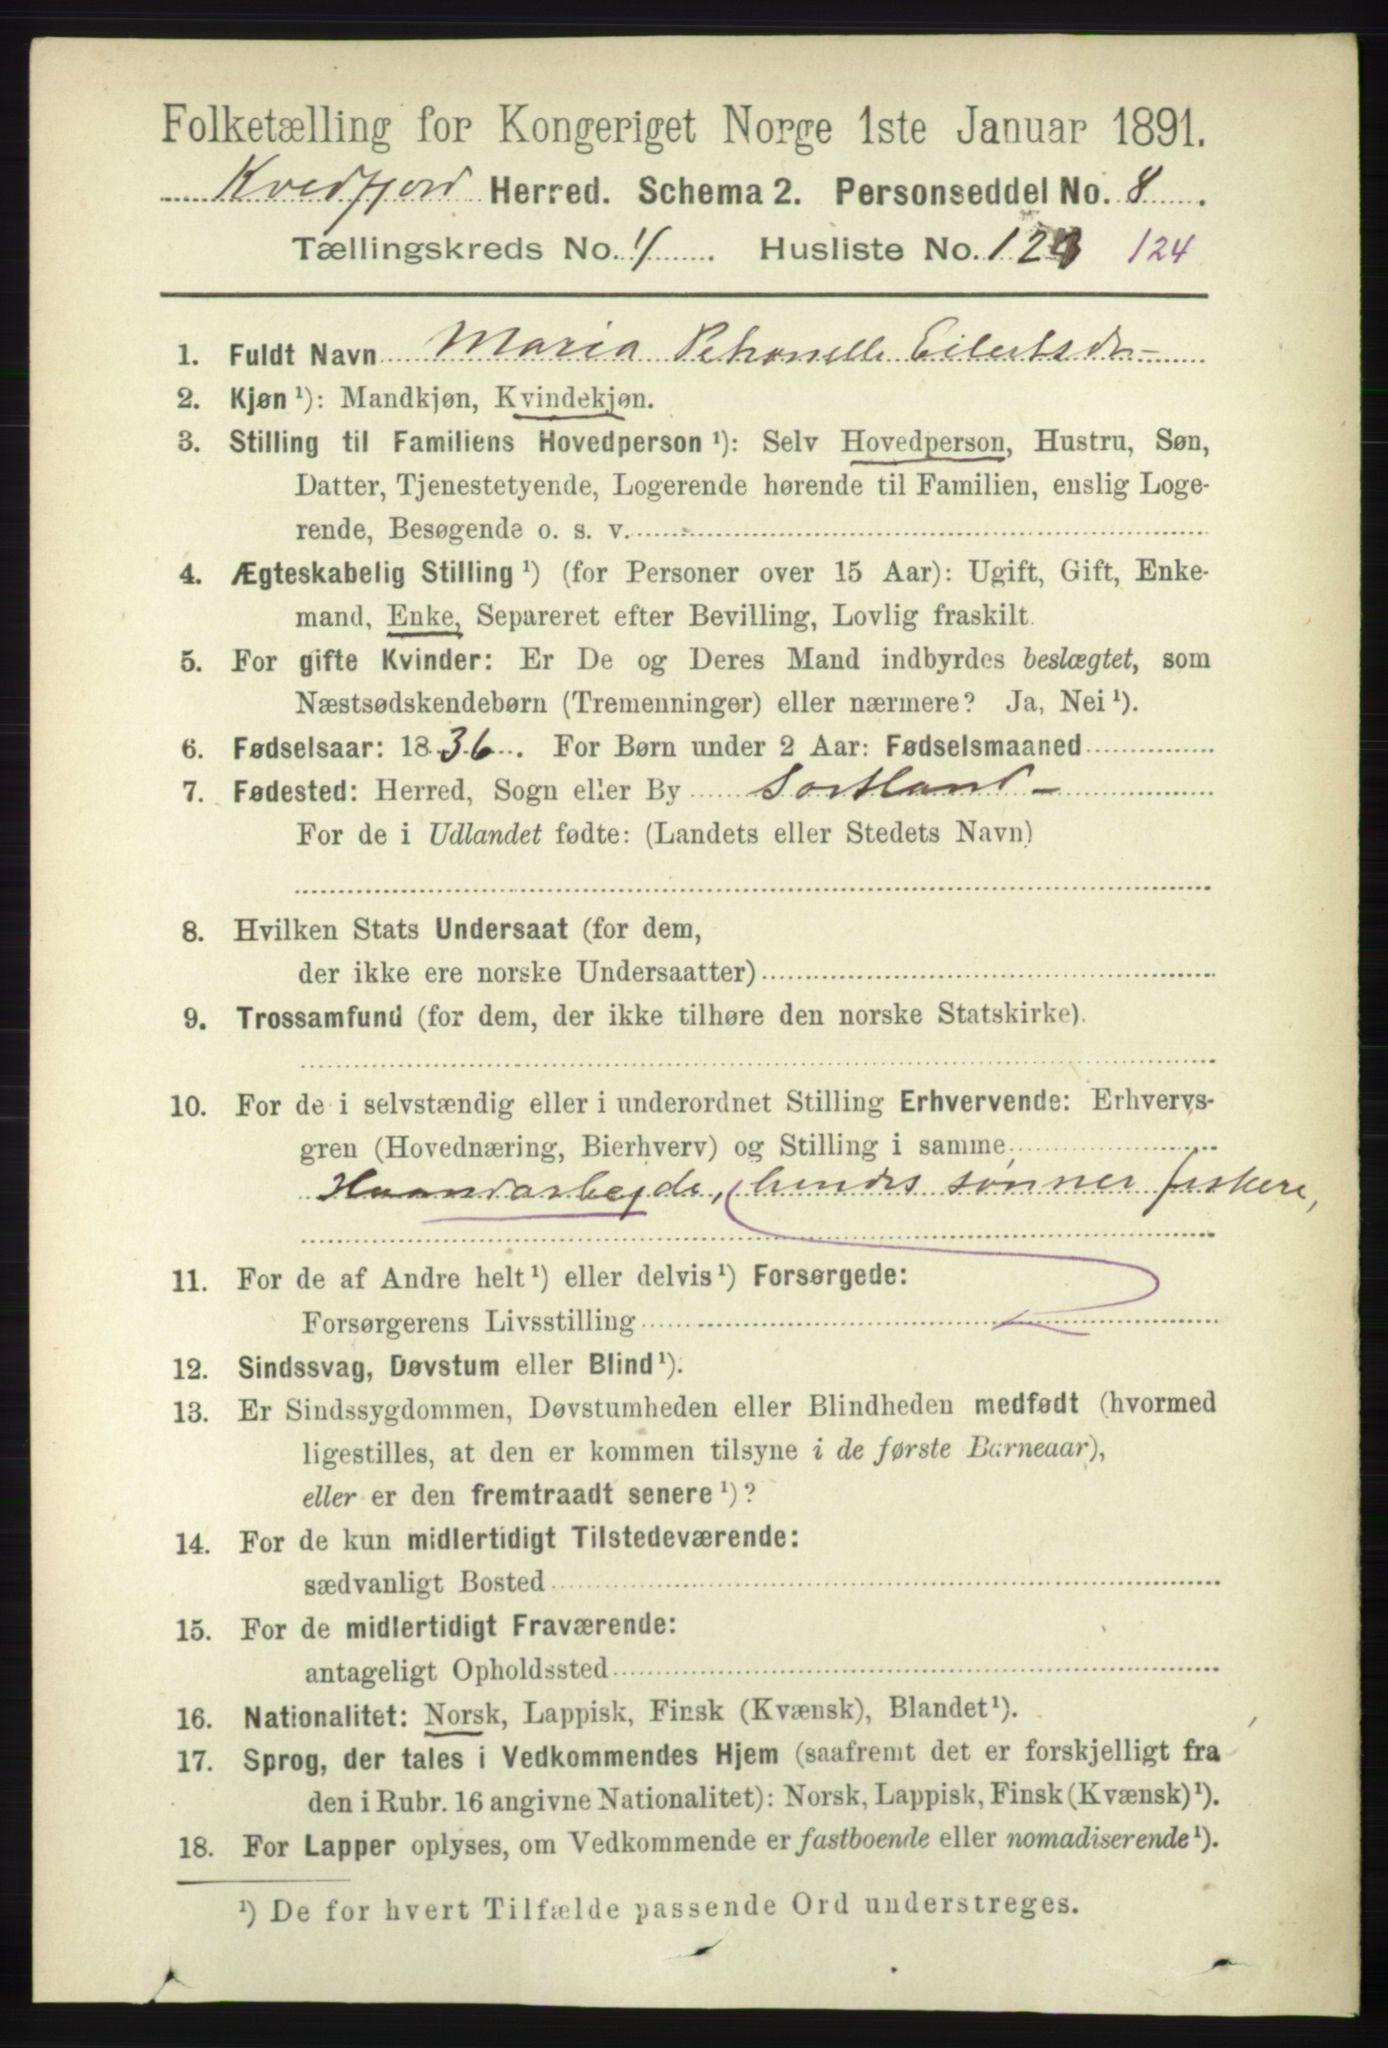 Folketælling for Kongeriget Norge 1ste Januar 1891.
Kvedfjord Herred. Schema 2. Personseddel No. 8.
Tællingskreds No. 4. Husliste No. 123 124
1. Fuldt Navn Maria Petronelle Eilertsdr
2. Kjøn ¹): Mandkjøn, Kvindekjøn.
3. Stilling til Familiens Hovedperson ¹): Selv Hovedperson, Hustru, Søn,
Datter, Tjenestetyende, Logerende hørende til Familien, enslig Loge-
rende, Besøgende o. s. v.
4. Ægteskabelig Stilling ¹) (for Personer over 15 Aar): Ugift, Gift, Enke-
mand, Enke, Separeret efter Bevilling, Lovlig fraskilt.
5. For gifte Kvinder: Er De og Deres Mand indbyrdes beslægtet, som
Næstsødskendebørn (Tremenninger) eller nærmere? Ja, Nei ¹).
6. Fødselsaar: 1836. For Børn under 2 Aar: Fødselsmaaned
7. Fødested: Herred, Sogn eller By Sortland -
For de i Udlandet fødte: (Landets eller Stedets Navn)
8. Hvilken Stats Undersaat (for dem,
der ikke ere norske Undersaatter)
9. Trossamfund (for dem, der ikke tilhøre den norske Statskirke).
10. For de i selvstændig eller i underordnet Stilling Erhvervende: Erhvervs-
gren (Hovednæring, Bierhverv) og Stilling i samme
Haandarbejde, hendes sønner fiskere,
11. For de af Andre helt ¹) eller delvis ¹) Forsørgede:
Forsørgerens Livsstilling
12. Sindssvag, Døvstum eller Blind ¹).
13. Er Sindssygdommen, Døvstumheden eller Blindheden medfødt (hvormed
ligestilles, at den er kommen tilsyne i de første Barneaar),
eller er den fremtraadt senere ¹)?
14. For de kun midlertidigt Tilstedeværende:
sædvanligt Bosted
15. For de midlertidigt Fraværende:
antageligt Opholdssted
16. Nationalitet: Norsk, Lappisk, Finsk (Kvænsk), Blandet ¹).
17. Sprog, der tales i Vedkommendes Hjem (saafremt det er forskjelligt fra
den i Rubr. 16 angivne Nationalitet): Norsk, Lappisk, Finsk (Kvænsk) ¹).
18. For Lapper oplyses, om Vedkommende er fastboende eller nomadiserende ¹).
¹) De for hvert Tilfælde passende Ord understreges.